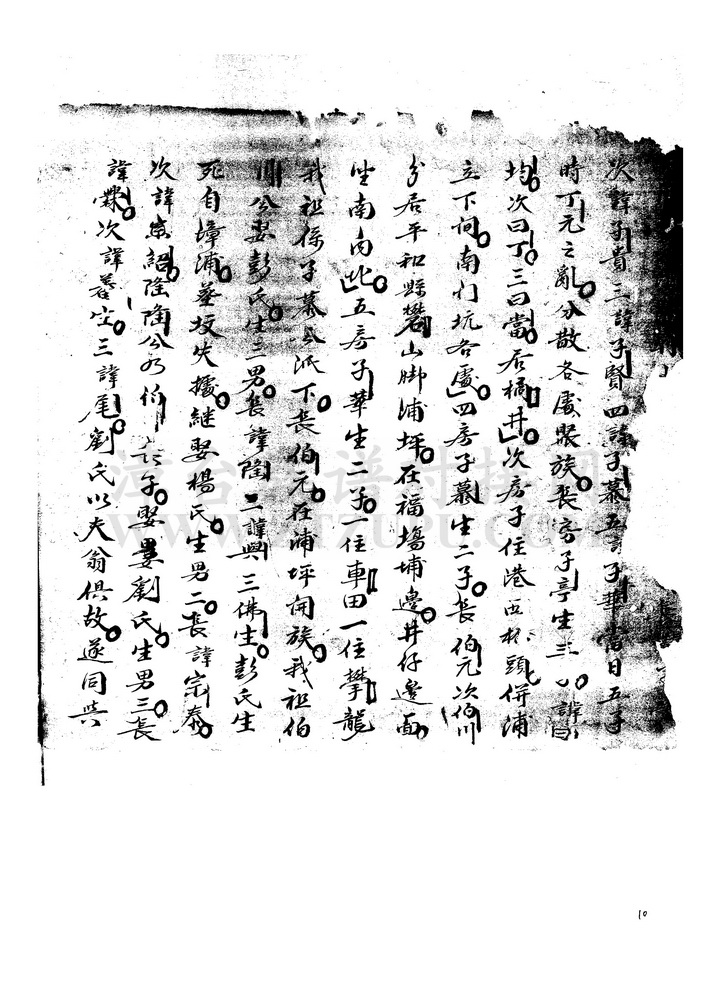 次諱子貴三諱子賢四諱子慕五諱子華當日五子
時丁元之亂分散各處聚族長房子亭生三 諱
均次曰丁三曰當居橘井次房子住港西林頭併浦
立下河南门坑各處四房子慕生二子長伯元次伯川
分居平和縣礬山脚浦坪在福塲埔邊井仔邊面
坐南向北五房子華生二子一住車田一住攀龍
我祖係子慕公派下長伯元在浦坪開族我祖伯
川公娶彭氏生二男長諱隆二諱興三佛生彭氏生
死自墇浦墓坟失擄継娶楊氏生男二長諱宗泰
次諱宗紹隆陶公乃伯 子娶婁劉氏生男三長
諱霖次諱養空三諱尾劉氏以夫翁俱故遂同共
10
漳台族谱对接网
WWW.ZTZUPU.COM